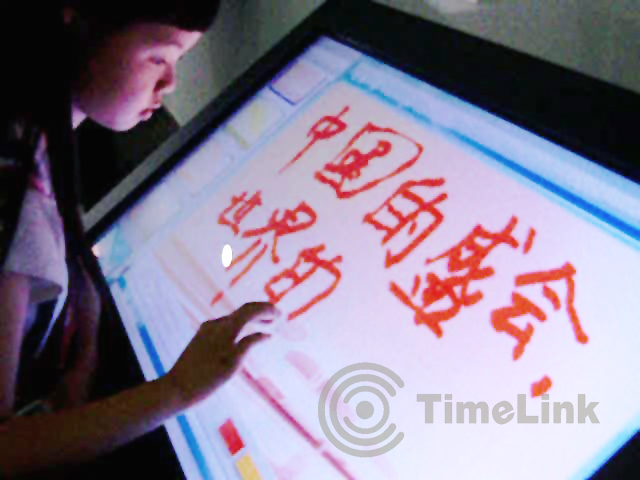 中国的盛会.
世界的
TimeLink